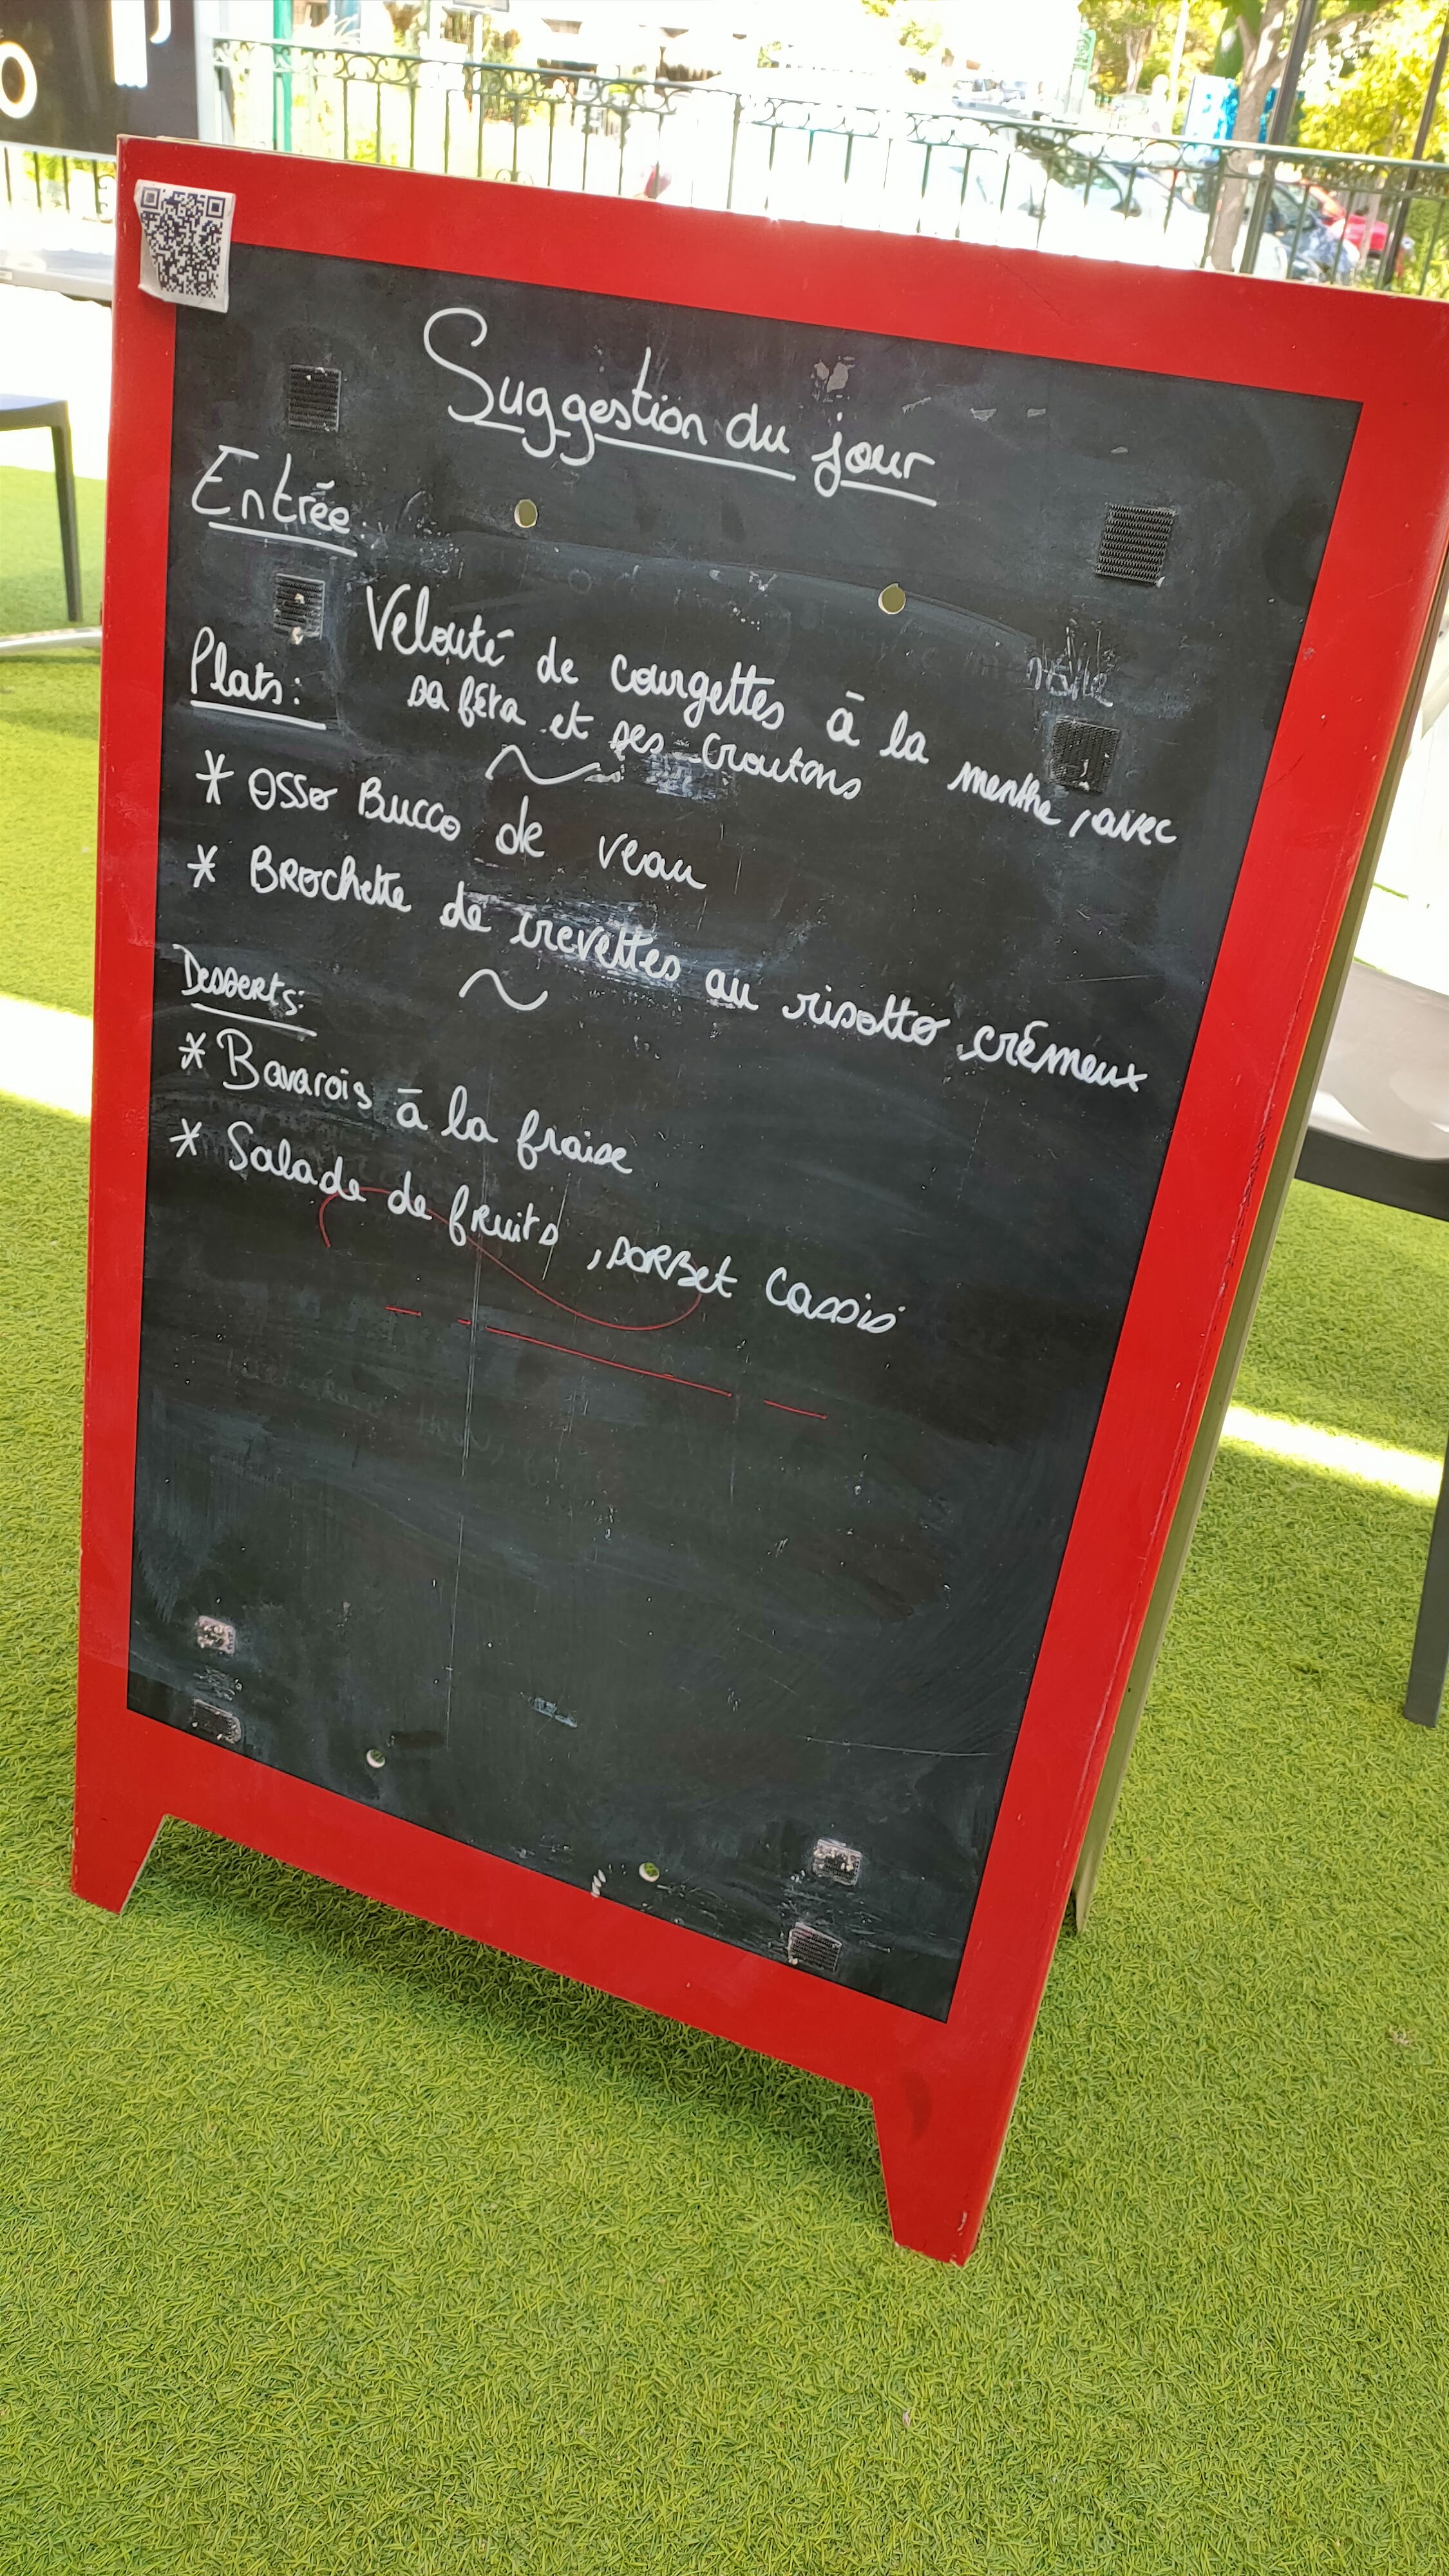 Suggestion du jour
Entrée
Velouté de courgettes à la menthe, avec
sa féta et ses croutons
Plats:
* Osso Bucco de veau
* Brochette de crevettes au risotto crémeux
Desserts:
* Bavarois à la fraise
* Salade de fruits, sorbet Cassis